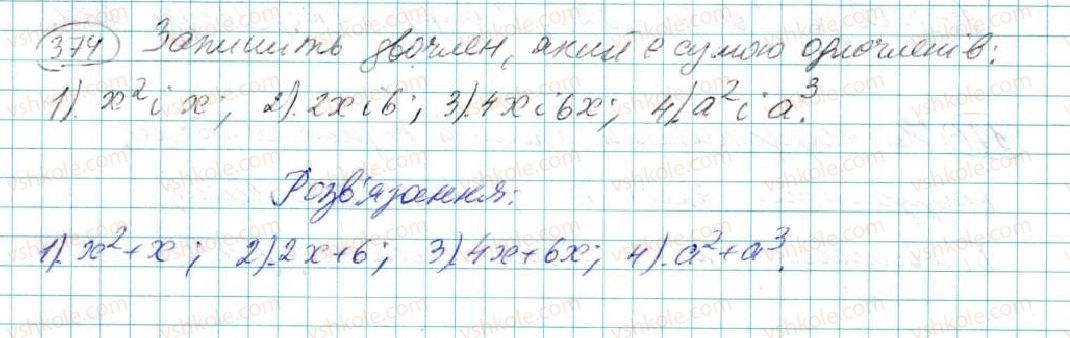 374 Запишіть двочлен, який є сумою одночленів:
1). x² і x; 2). 2x і 6; 3). 4x і 6x; 4). a² і a³.
Розв'язання:
1). x²+x; 2). 2x+6; 3). 4x+6x; 4). a²+a³.